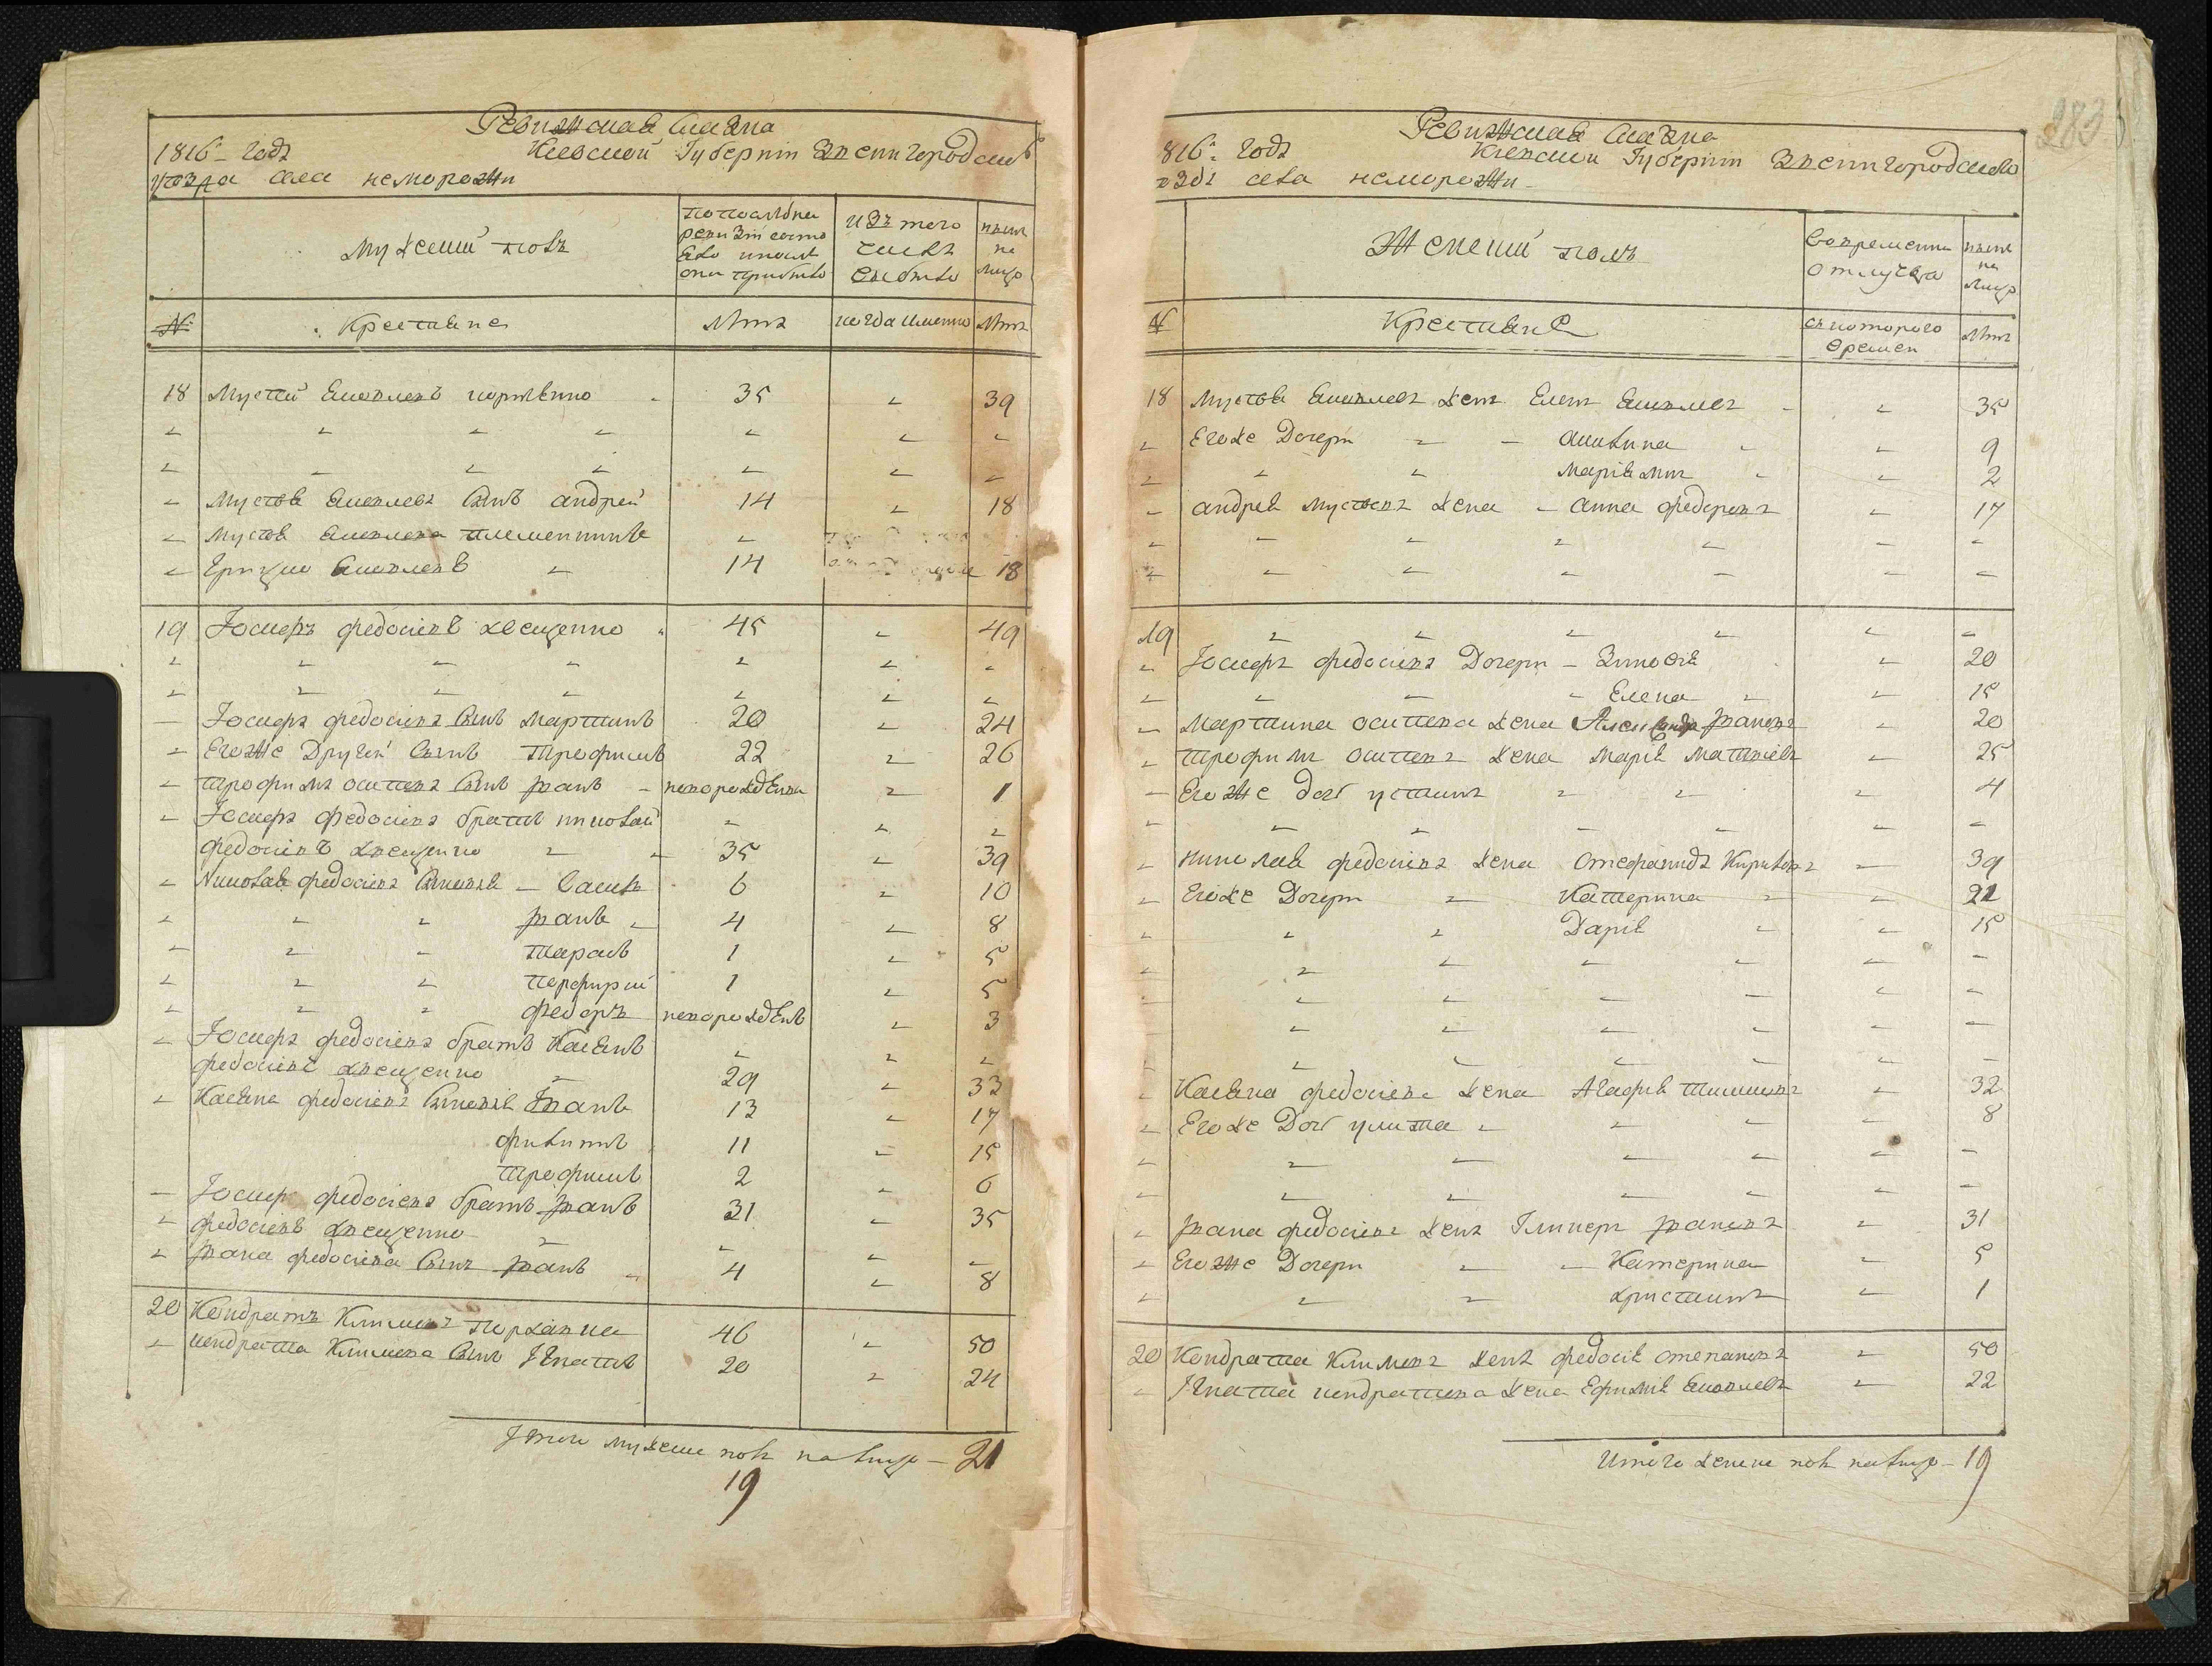 Ревижская Сказка
1816 года Киевской Губернии Звенигородска
уезда села неморожи
Мужеский полъ
По последней ревизии состояло и после оной прибыло
Изъ того числа выбыло
ныне на лицо
№ Крестяне Летъ когда именно Летъ
18 Мустей Яковлевъ 35 39
Мустея Яковлева Сынъ андрей 14 18
Мустея Яковлева племенникъ
Грицко Яковлевъ 14 18
19 Іосифъ федосіевъ хвещенко 45 49
Іосифа федосіева Сынъ мартинъ 20 24
Егоже Другій Сынъ Трофимъ 22 26
трофима осипова Сынъ Іванъ новорожденъ 1
Іосифа федосіева братъ николай
федосіевъ хвещенко 35 39
Николая федосіева Сыновья Василь 6 10
Іванъ 4 8
Тарасъ 1 5
Перфирій 1 5
федоръ новорожденъ 3
Іосифа федосіева братъ Касянъ
федосіевъ хвещенко 29 33
Касяна федосіева Сыновья Іванъ 13 17
филипъ 11 15
Трофимъ 2 6
Іосифа федосіева братъ Іванъ 31 35
федосіевъ хвещенко
Івана федосіева Сынъ Іванъ 4 8
20 Кондратъ Климовъ 46 50
кондрата Климова Сынъ Ігнатъ 20 24
Итого мужеска полъ на лицо 21
19
283
Ревижская Сказка
816 года Киевской Губернии Звенигородского
села неморожи
Женский полъ
Во временной отлучке
ныне на лицо
№ Крестяне съ которого времени Летъ
18 Мустея Яковлева жена Елена Яковлева 35
Егоже Дочери акилина 9
Марія 2
андрея мустеева жена анна федорова 17
19
Іосифа федосіева Дочери Зиновія 20
Елена 15
Мартина осипова жена Александра Іванова 20
Трофима осипова жена Марія 25
Егоже дочь устина 4
николая федосіева жена Стефанида Кирилова 39
Егоже Дочери Катерина 21
Дарія 15
Касяна федосіева жена Агафія 32
Егоже Дочь улита 8
Івана федосіева жена Гликера Іванова 31
Егоже Дочери Катерина 5
христина 1
20 Кондрата Климова жена федосія Степанова 50
Ігната кондратова жена Ефимія Яковлева 22
Итого женска полъ на лицо 19